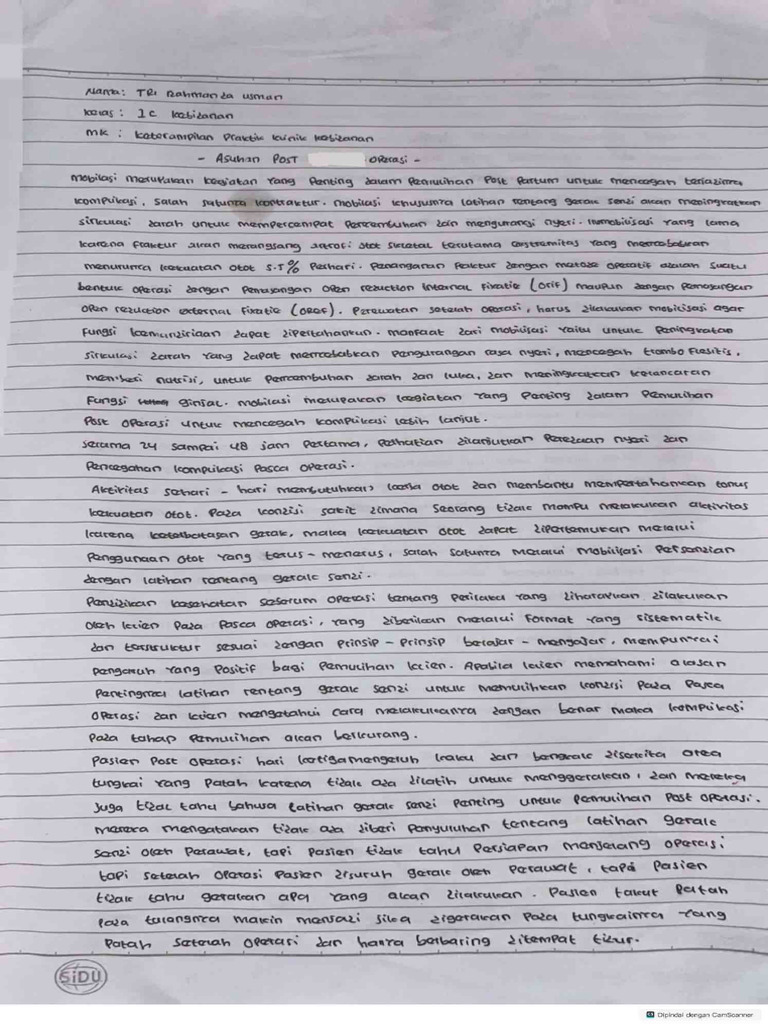 Nama: TRI Rahmanda usman
Kelas: 1C kebidanan
MK: keterampilan praktik klinik kebidanan
- Asuhan POST operasi -
Mobilisasi merupakan kegiatan yang penting dalam pemulihan post partum untuk mencegah terjadinya
komplikasi, salah satunya kontraktur. mobilisasi khususnya latihan rentang gerak sendi akan meningkatkan
sirkulasi darah untuk mempercepat penyembuhan dan mengurangi nyeri. Immobilisasi yang lama
karena fraktur akan merangsang atrofi otot skeletal terutama ekstremitas yang menyebabkan
menurunnya kekuatan otot 5.5% perhari. Penanganan fraktur dengan metode operatif adalah suatu
bentuk operasi dengan pemasangan open reduction internal fixatie (Orif) maupun dengan pemasangan
open reduction external fixatie (OREF). Perawatan setelah operasi, harus dilakukan mobilisasi agar
fungsi kemandirian dapat dipertahankan. manfaat dari mobilisasi yaitu untuk peningkatan
sirkulasi darah yang dapat menyebabkan pengurangan rasa nyeri, mencegah trombo flebitis,
memberi nutrisi, untuk penyembuhan darah dan luka, dan meningkatkan kelancaran
fungsi ginjal. mobilasi merupakan kegiatan yang penting dalam pemulihan
post operasi untuk mencegah komplikasi lebih lanjut.
selama 24 sampai 48 jam pertama, perhatian dilanjutkan peredaan nyeri dan
pencegahan komplikasi pasca operasi.
Aktivitas sehari - hari membutuhkan kerja otot dan membantu mempertahankan tonus
kekuatan otot. Pada kondisi sakit dimana seorang tidak mampu melakukan aktivitas
karena keterbatasan gerak, maka kekuatan otot dapat dipertemukan melalui
penggunaan otot yang terus - menerus, salah satunya melalui mobilisasi persendian
dengan latihan rentang gerak sendi.
Pendidikan kesehatan sebelum operasi tentang perilaku yang diharapkan dilakukan
oleh klien pada pasca operasi, yang diberikan melalui format yang sistematik
dan terstruktur sesuai dengan prinsip - prinsip belajar - mengajar, mempunyai
pengaruh yang positif bagi pemulihan klien. Apabila klien memahami alasan
pentingnya latihan rentang gerak sendi untuk memulihkan kondisi pada pasca
operasi dan klien mengetahui cara melakukannya dengan benar maka komplikasi
pada tahap pemulihan akan berkurang.
pasien post operasi hari ketiga mengeluh kaku dan bengkak disekita area
tungkai yang patah karena tidak ada dilatih untuk menggerakan, dan mereka
juga tidak tahu bahwa latihan gerak sendi penting untuk pemulihan post operasi.
mereka mengatakan tidak ada diberi penyuluhan tentang latihan gerak
sendi oleh perawat, tapi pasien tidak tahu persiapan menjelang operasi
tapi setelah operasi pasien disuruh gerak oleh perawat, tapi pasien
tidak tahu gerakan apa yang akan dilakukan. Pasien takut patah
pada tulangnya makin menjadi jika digerakan pada tungkainya yang
patah setelah operasi dan hanya berbaring ditempat tidur.
SiDU
Dipindai dengan CamScanner